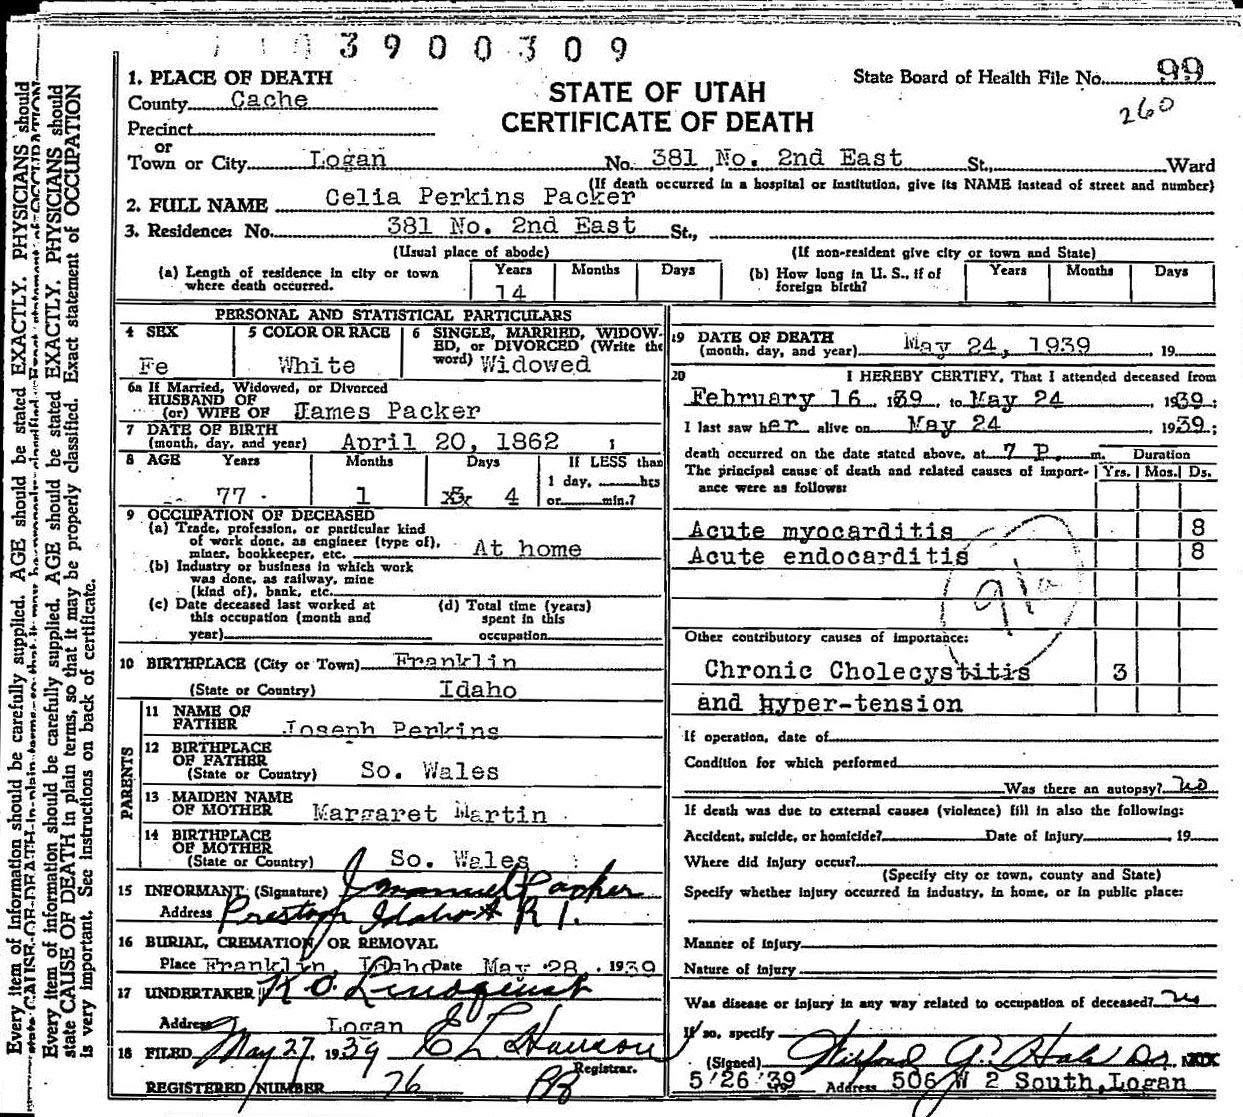 3900309
State Board of Health File No. 99
260
STATE OF UTAH
CERTIFICATE OF DEATH
1. PLACE OF DEATH
County Cache
Precinct
or
Town or City Logan No. 381 No. 2nd East St., Ward
(If death occurred in a hospital or institution, give its NAME instead of street and number)
2. FULL NAME Celia Perkins Packer
3. Residence: No. 381 No. 2nd East St.,
(Usual place of abode) (If non-resident give city or town and State)
(a) Length of residence in city or town where death occurred. Years 14 Months Days
(b) How long in U. S., if of foreign birth? Years Months Days
PERSONAL AND STATISTICAL PARTICULARS
4 SEX Fe
5 COLOR OR RACE White
6 SINGLE, MARRIED, WIDOW-
ED, or DIVORCED (Write the
word) Widowed
6a If Married, Widowed, or Divorced
HUSBAND OF
(or) WIFE OF James Packer
7 DATE OF BIRTH
(month, day, and year) April 20, 1862
8 AGE Years Months Days If LESS than
1 day, hrs
77 1 4 or min.?
9 OCCUPATION OF DECEASED
(a) Trade, profession, or particular kind
of work done, as engineer (type of),
miner, bookkeeper, etc. At home
(b) Industry or business in which work
was done, as railway, mine
(kind of), bank, etc.
(c) Date deceased last worked at
this occupation (month and
year)
(d) Total time (years)
spent in this
occupation
10 BIRTHPLACE (City or Town) Franklin
(State or Country) Idaho
PARENTS
11 NAME OF
FATHER Joseph Perkins
12 BIRTHPLACE
OF FATHER
(State or Country) So. Wales
13 MAIDEN NAME
OF MOTHER Margaret Martin
14 BIRTHPLACE
OF MOTHER
(State or Country) So. Wales
15 INFORMANT (Signature) Immanuel Packer
Address Preston Idaho R 1.
16 BURIAL, CREMATION, OR REMOVAL
Place Franklin, Idaho Date May 28, 1939
17 UNDERTAKER K O Lindquist
Address Logan
18 FILED May 27, 1939 E L Hanson
Registrar.
REGISTERED NUMBER 76
19 DATE OF DEATH
(month, day, and year) May 24, 1939, 19
20 I HEREBY CERTIFY, That I attended deceased from
February 16 1939, to May 24 1939;
I last saw her alive on May 24 1939;
death occurred on the date stated above, at 7 P. m.
Duration
The principal cause of death and related causes of import-
ance were as follows: Yrs. Mos. Ds.
Acute myocarditis 8
Acute endocarditis 8
91a
Other contributory causes of importance:
Chronic Cholecystitis 3
and hyper-tension
If operation, date of
Condition for which performed
Was there an autopsy? no
If death was due to external causes (violence) fill in also the following:
Accident, suicide, or homicide? Date of injury 19
Where did injury occur?
(Specify city or town, county and State)
Specify whether injury occurred in industry, in home, or in public place:
Manner of injury
Nature of injury
Was disease or injury in any way related to occupation of deceased? no
If so, specify
(Signed)
5/26/39 Address 506 W 2 South, Logan
Every item of information should be carefully supplied. AGE should be stated EXACTLY. PHYSICIANS should
Every item of information should be carefully supplied. AGE should be stated EXACTLY. PHYSICIANS should
state CAUSE OF DEATH in plain terms, so that it may be properly classified. Exact statement of OCCUPATION
is very important. See instructions on back of certificate.